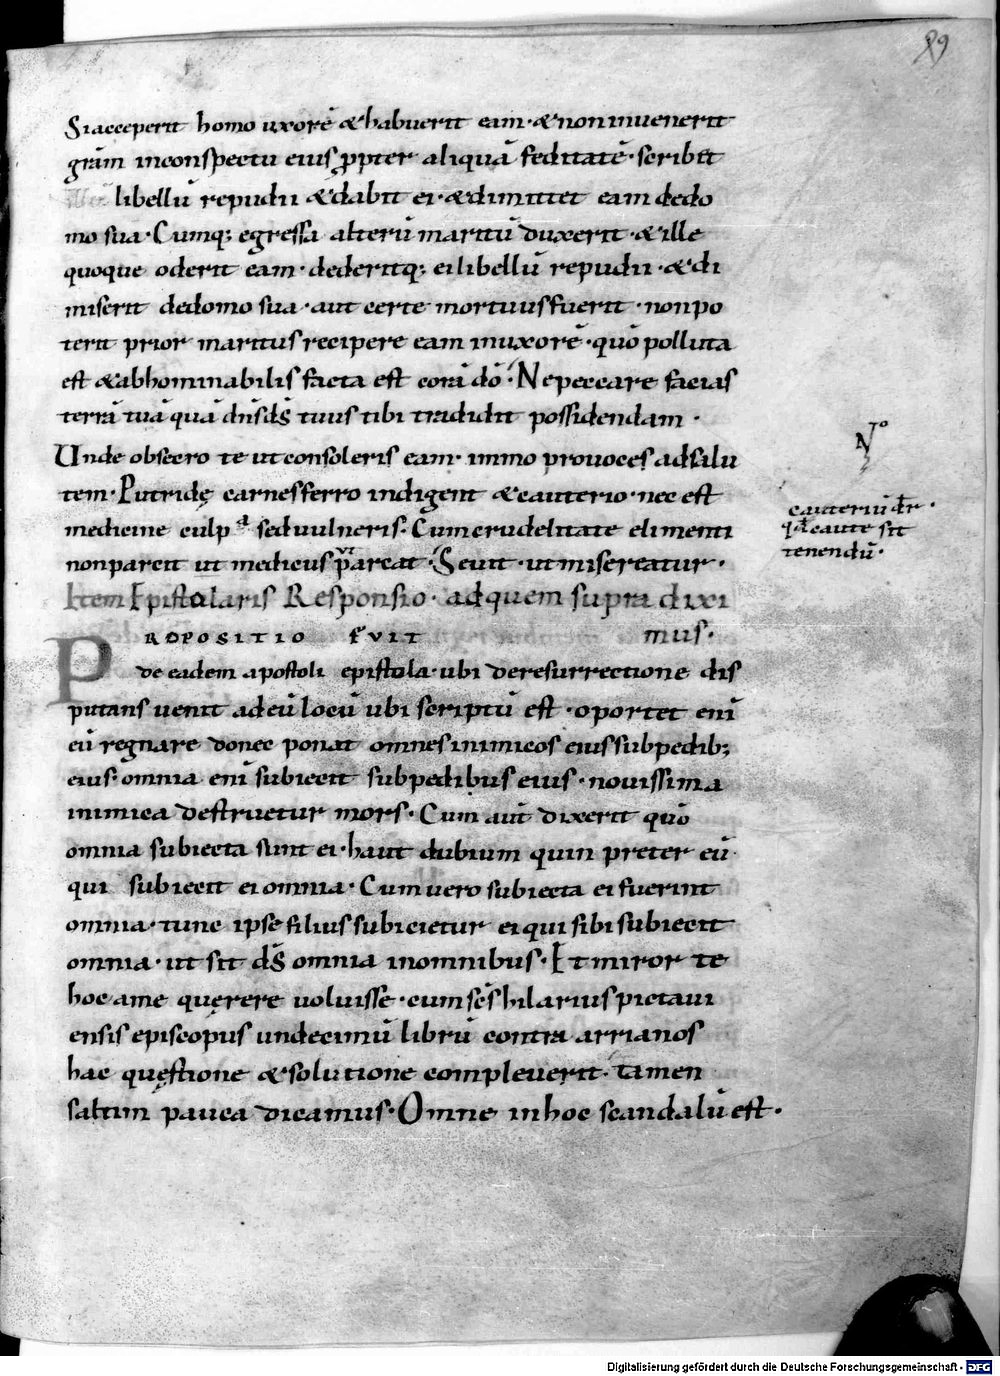 89
Siacceperit homo uxorē &habuerit eam· &noninuenerit
grām inconspectu eius ꝓpter aliquā feditatē· scribēt
libellū repudii &dabit ei· &dimittet eam dedo
mo sua· Cumq; egressa alterū maritū duxerit· &ille
quoque oderit eam· dederitq; ei libellū repudii· &di
miserit dedomo sua· aut certe mortuus fuerit· nonpo
terit prior maritus recipere eam inuxorē· quō polluta
est &abhominabilis facta est corā dō· Nepeccare facias
terrā tuā quā dn̄s ds̄ tuus tibi tradidit possidendam·
Unde obsecro te utconsoleris eam· immo prouoces adsalu
tem· Putridę carnes ferro indigent &cauterio· nec est
medicine culpa sed uulneris· Cum crudelitate clementi
nonparcit ut medicus parcat· Seuit· ut misereatur·
N°
cauteriū dr̄·
qđ caute sit
tenendū·
Item Epistolaris Responsio· ad quem supra diximus·
PROPOSITIO FVIT
de eadem apostoli epistola· ubi deresurrectione dis
putans uenit ad eū locū ubi scriptū est· oportet enī
eū regnare donec ponat omnes inimicos eius subpedib;
eius· omnia enī subiecit subpedibus eius· nouissima
inimica destruetur mors· Cum aūt dixerit quō
omnia subiecta sunt ei· haut dubium quin preter eū
qui subiecit ei omnia· Cum uero subiecta ei fuerint
omnia· tunc ipse filius subicietur ei qui sibi subiecit
omnia· ut sit ds̄ omnia inomnibus· Et miror te
hoc ame querere uoluisse· cum scs̄ hilarius pictaui
ensis episcopus undecimū librū contra arrianos
hac quęstione &solutione compleuerit· tamen
saltim pauca dicamus· Omne inhoc scandalū est·
Digitalisierung gefördert durch die Deutsche Forschungsgemeinschaft · DFG